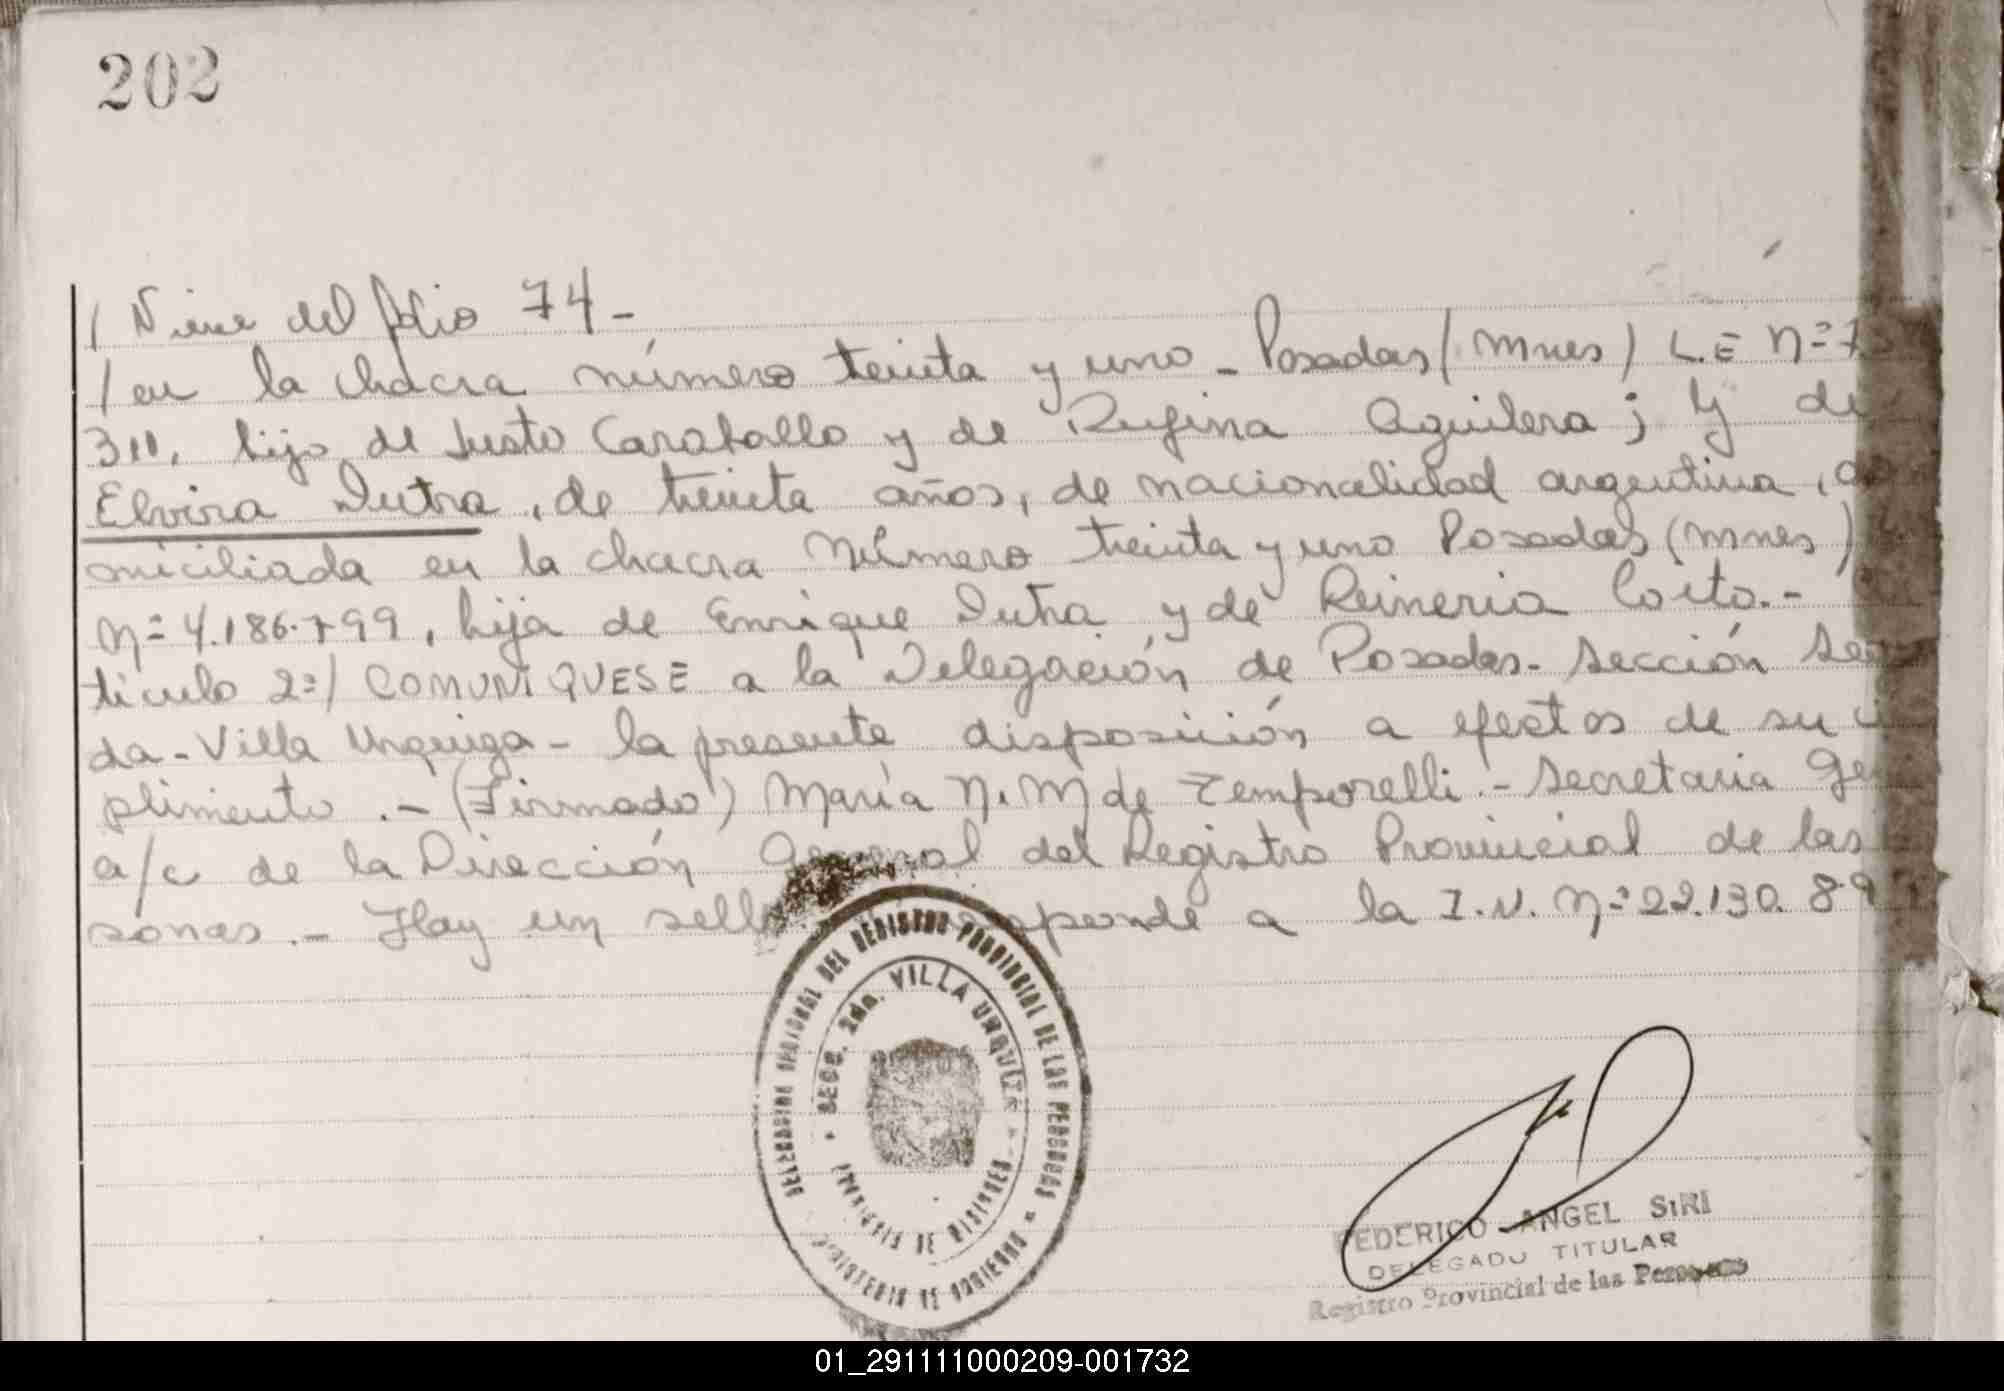 202
/ Viene del folio 74-
/ en la chacra número treinta y uno - Posadas (Mnes) L.E Nº 7.5
311, hijo de Justo Caraballo y de Rufina Aguilera; y de
Elvira Dutra, de treinta años, de nacionalidad argentina, do
miciliada en la chacra número treinta y uno Posadas (Mnes)
Nº 4.186.799, hija de Enrique Dutra y de Reineria Coito.-
tículo 2º/ COMUNIQUESE a la Delegación de Posadas - Sección Se
da - Villa Urquiza - la presente disposición a efectos de su
plimiento .- (Firmado) María N. M de Temporelli.- Secretaria Ge
a/c de la Dirección General del Registro Provincial de las
sonas .- Hay un sello. a la I.N. Nº 22.130.89
DELEGACION REGIONAL DEL REGISTRO PROVINCIAL DE LAS PERSONAS
SECC. 2da. VILLA URQUIZA
PROVINCIA DE MISIONES
MINISTERIO DE GOBIERNO
FEDERICO ANGEL SIRI
DELEGADO TITULAR
Registro Provincial de las Personas
01_291111000209-001732